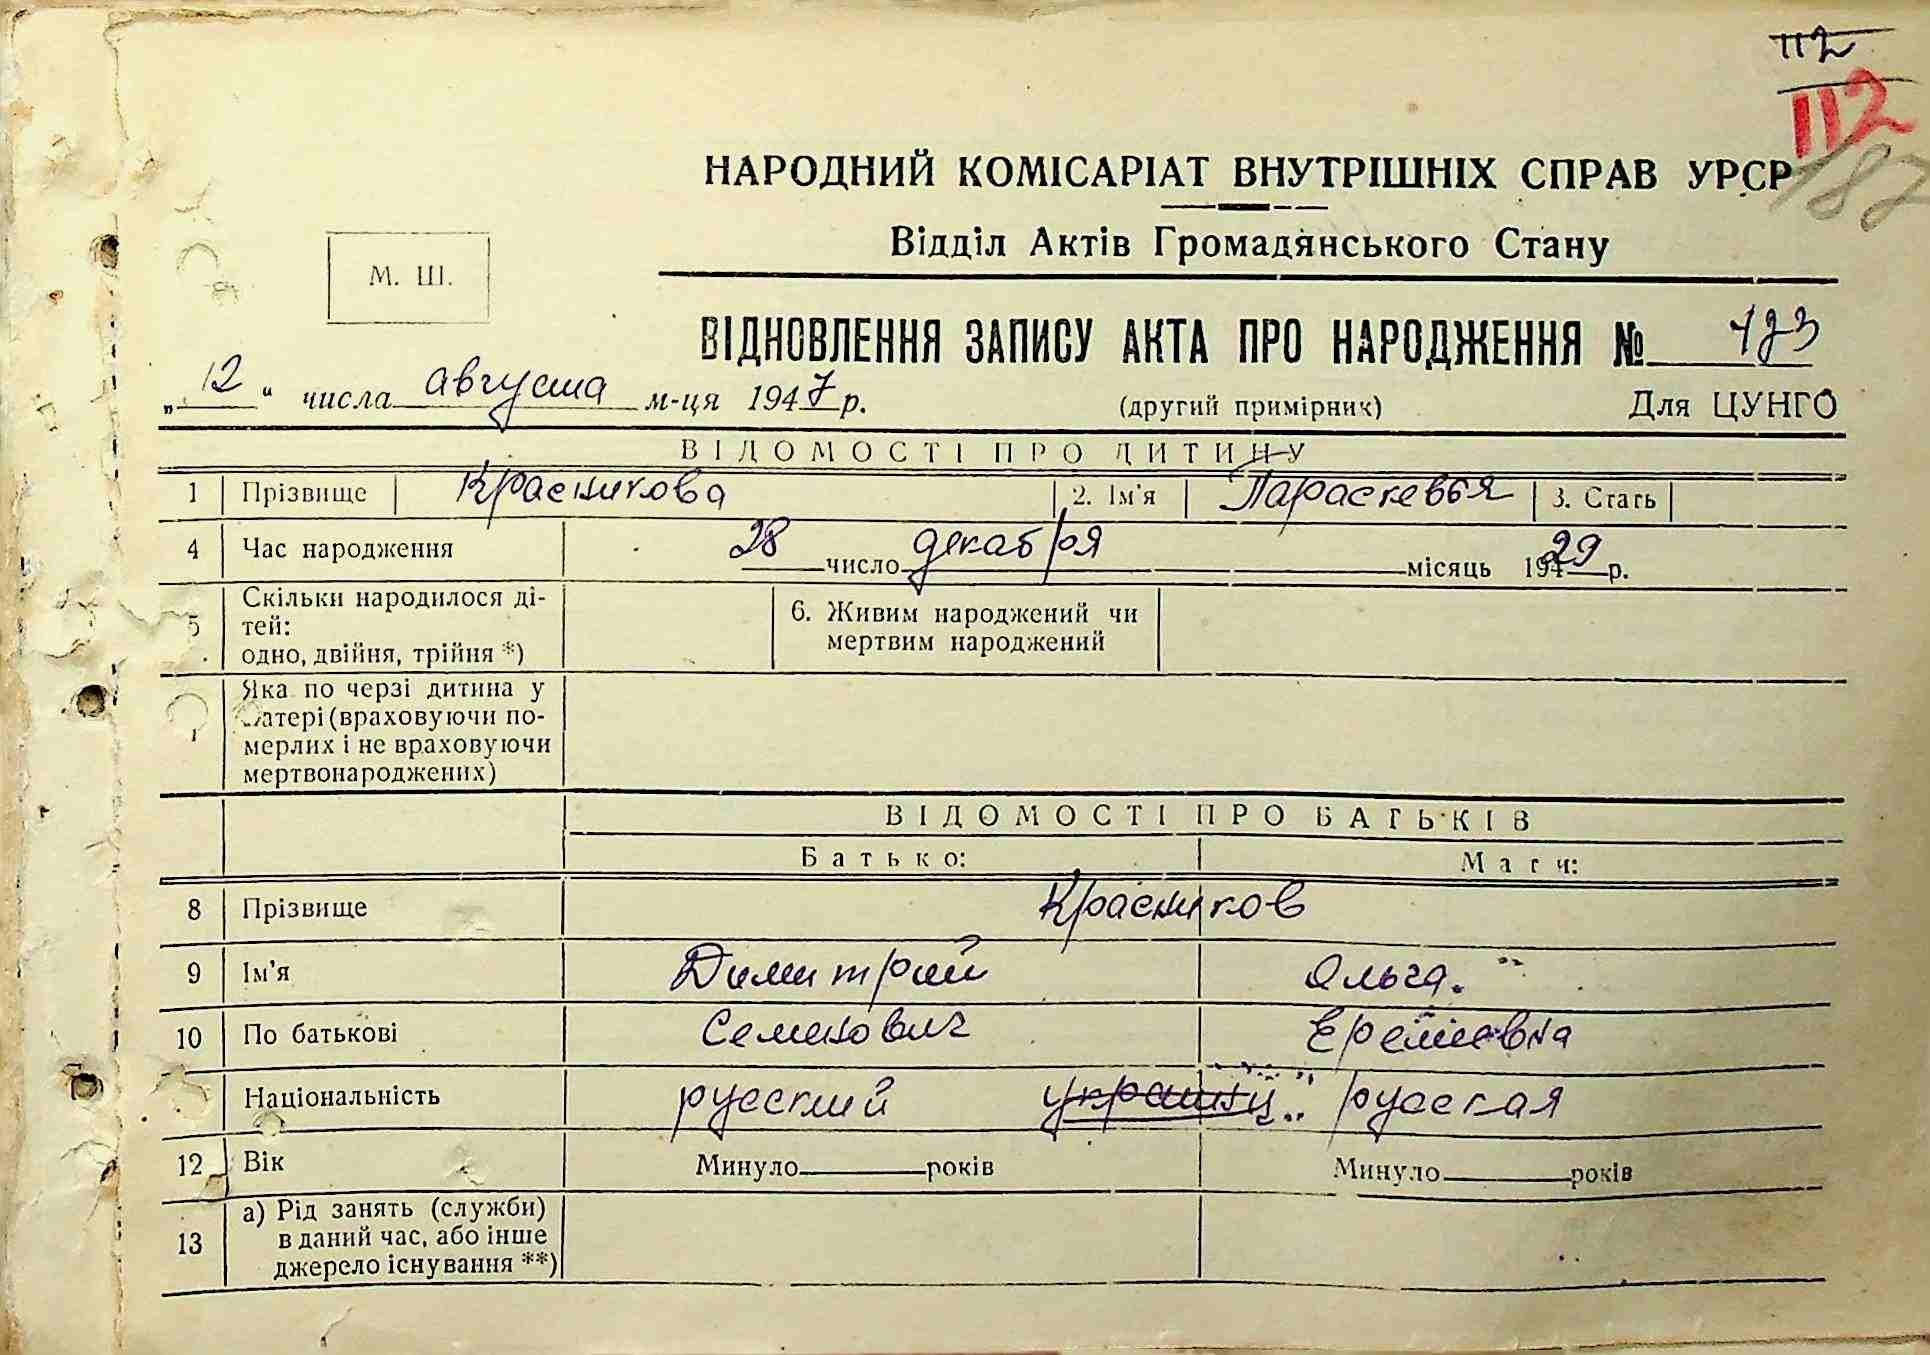 112
112
187
НАРОДНИЙ КОМІСАРІАТ ВНУТРІШНІХ СПРАВ УРСР
Відділ Актів Громадянського Стану
М. Ш.
ВІДНОВЛЕННЯ ЗАПИСУ АКТА ПРО НАРОДЖЕННЯ № 123
„12“ числа августа м-ця 1947 р. (другий примірник) Для ЦУНГО
ВІДОМОСТІ ПРО ДИТИНУ
1 Прізвище Красникова 2. Ім'я Параскевья 3. Стать
4 Час народження 28 число декабря місяць 1929 р.
5 Скільки народилося ді-
тей:
одно, двійня, трійня *)
6. Живим народжений чи
мертвим народжений
Яка по черзі дитина у
матері (враховуючи по-
мерлих і не враховуючи
мертвонароджених)
ВІДОМОСТІ ПРО БАТЬКІВ
Батько: Мати:
8 Прізвище Красников
9 Ім'я Димитрий Ольга.
10 По батькові Семенович Еремеевна
Національність русский украинц. русская
12 Вік Минуло років Минуло років
13 а) Рід занять (служби)
в даний час, або інше
джерело існування **)